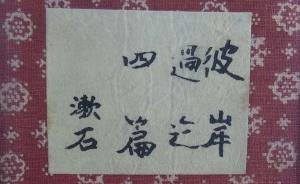 彼岸
過迄
四篇
漱石